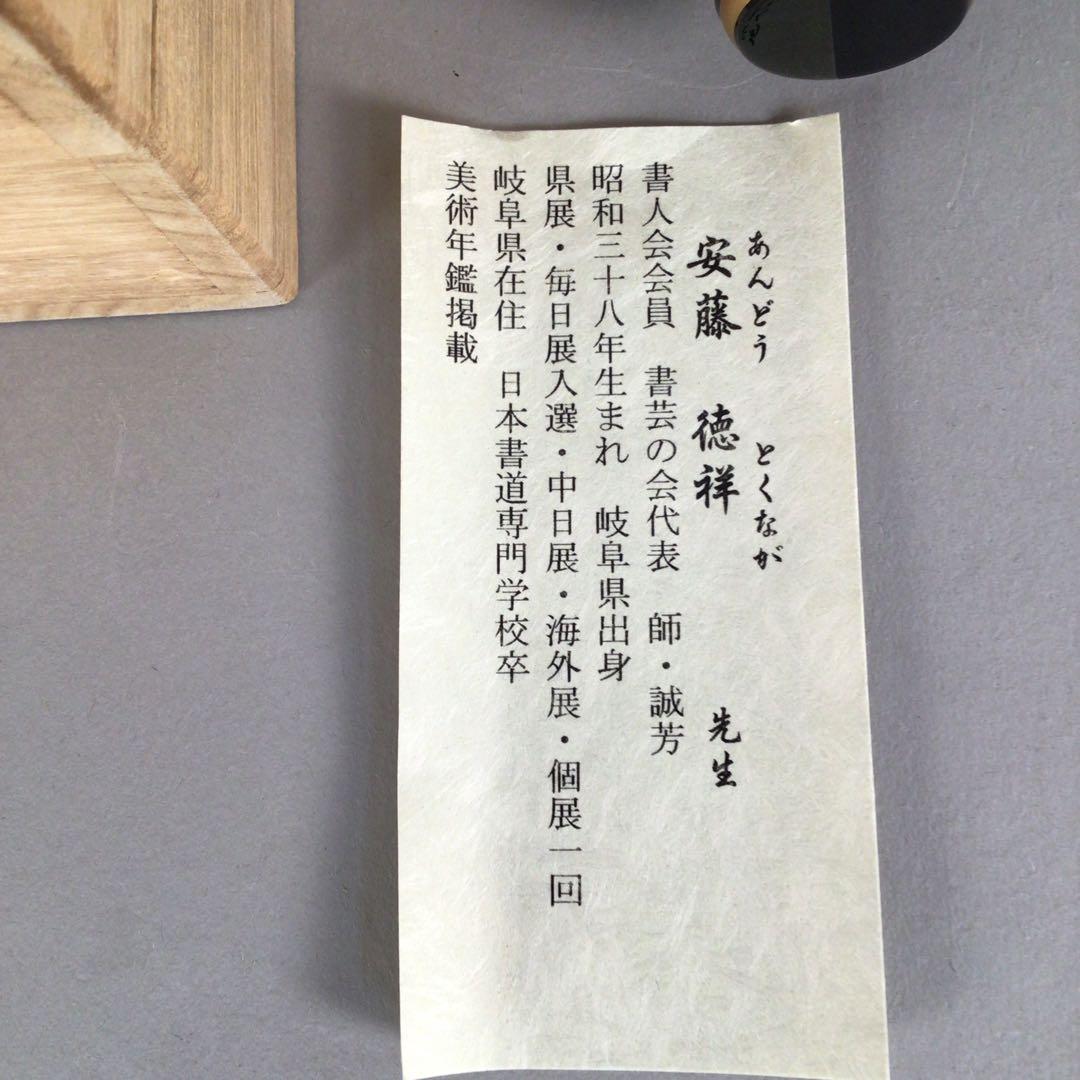 あんどう　とくなが
安藤　徳祥　先生
書人会会員　書芸の会代表　師・誠芳
昭和三十八年生まれ　岐阜県出身
県展・毎日展入選・中日展・海外展・個展一回
岐阜県在住　日本書道専門学校卒
美術年鑑掲載